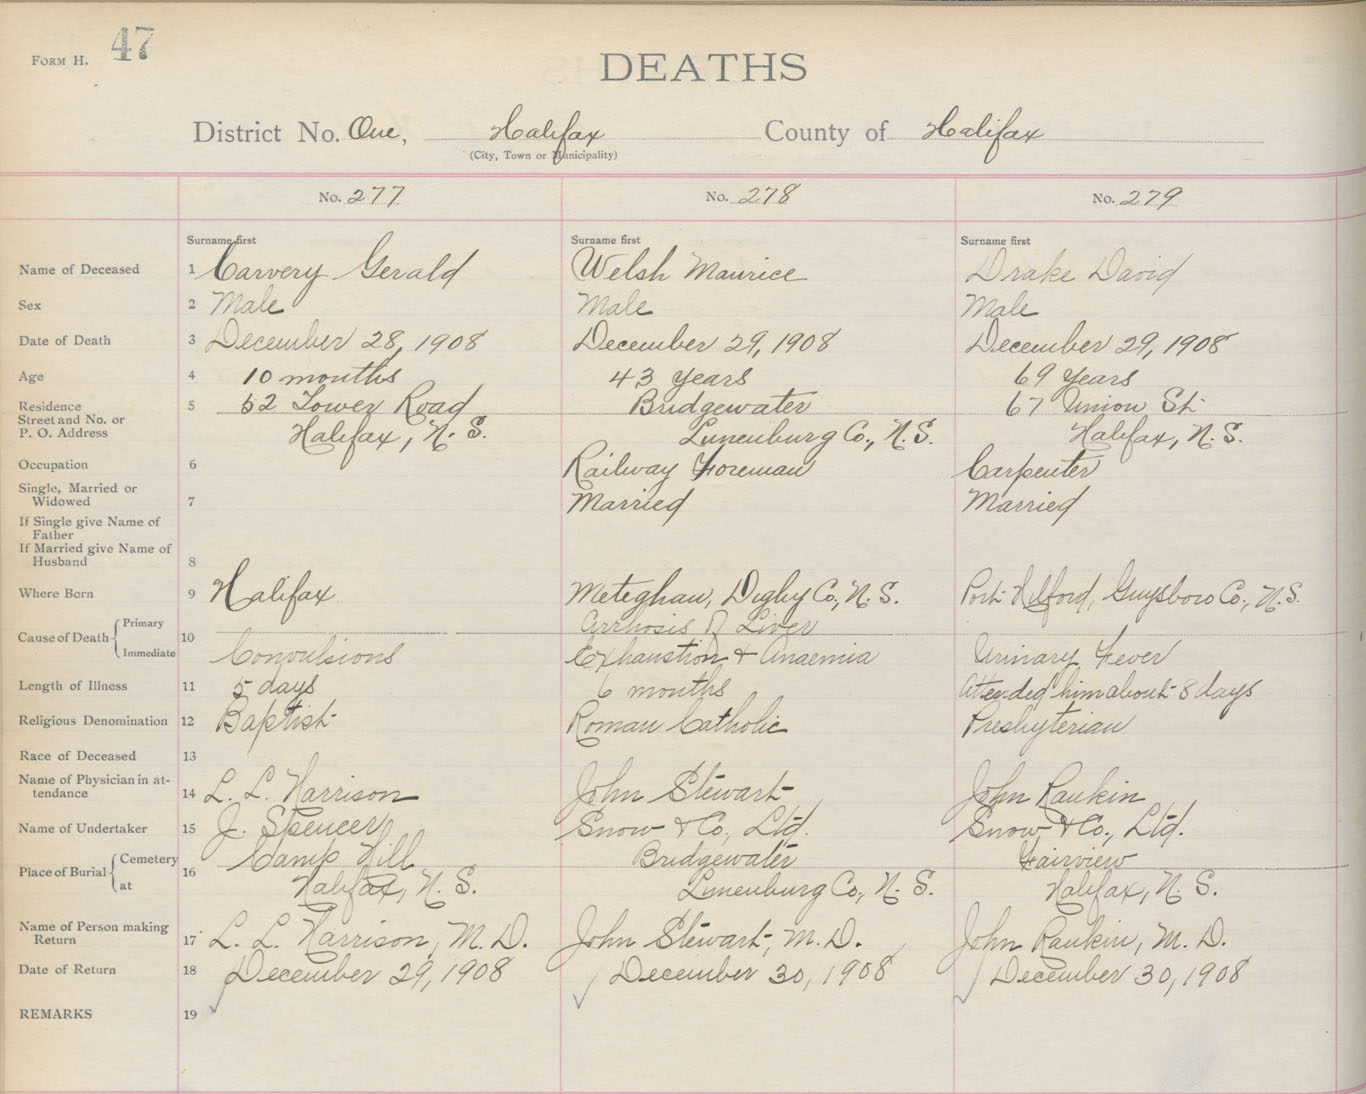 FORM H. 47
DEATHS
District No. One, Halifax County of Halifax
(City, Town or Municipality)
No. 277 No. 278 No. 279
Surname first Surname first Surname first
Name of Deceased 1 Carvery Gerald Welsh Maurice Drake David
Sex 2 Male Male Male
Date of Death 3 December 28, 1908 December 29, 1908 December 29, 1908
Age 4 10 months 43 years 69 years
Residence 5 52 Tower Road Bridgewater 67 Union St
Street and No. or
P. O. Address Halifax, N. S. Lunenburg Co., N. S. Halifax, N. S.
Occupation 6 Railway Foreman Carpenter
Single, Married or
Widowed 7 Married Married
If Single give Name of
Father
If Married give Name of
Husband 8
Where Born 9 Halifax Meteghan, Digby Co., N. S. Port Hilford, Guysboro Co., N. S.
Cause of Death Primary 10 Cirrhosis of Liver
Immediate Convulsions Exhaustion & Anaemia Urinary Fever
Length of Illness 11 5 days 6 months Attended him about 8 days
Religious Denomination 12 Baptist Roman Catholic Presbyterian
Race of Deceased 13
Name of Physician in at-
tendance 14 L. L. Harrison John Stewart John Rankin
Name of Undertaker 15 J. Spencer Snow & Co., Ltd. Snow & Co., Ltd.
Place of Burial Cemetery 16 Camp Hill Bridgewater Fairview
at Halifax, N. S. Lunenburg Co., N. S. Halifax, N. S.
Name of Person making
Return 17 L. L. Harrison, M. D. John Stewart, M. D. John Rankin, M. D.
Date of Return 18 December 29, 1908 December 30, 1908 December 30, 1908
REMARKS 19